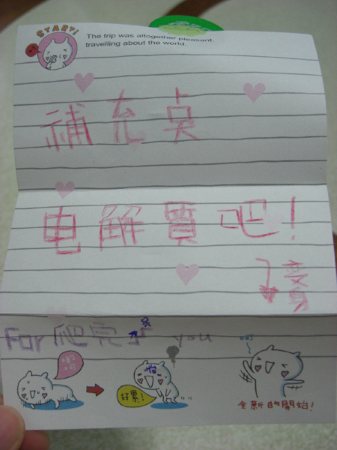 START!
The trip was altogether pleasant.
travelling about the world.
補充奌
电解質吧!
For 爬完 you
好累!
全新的開始!